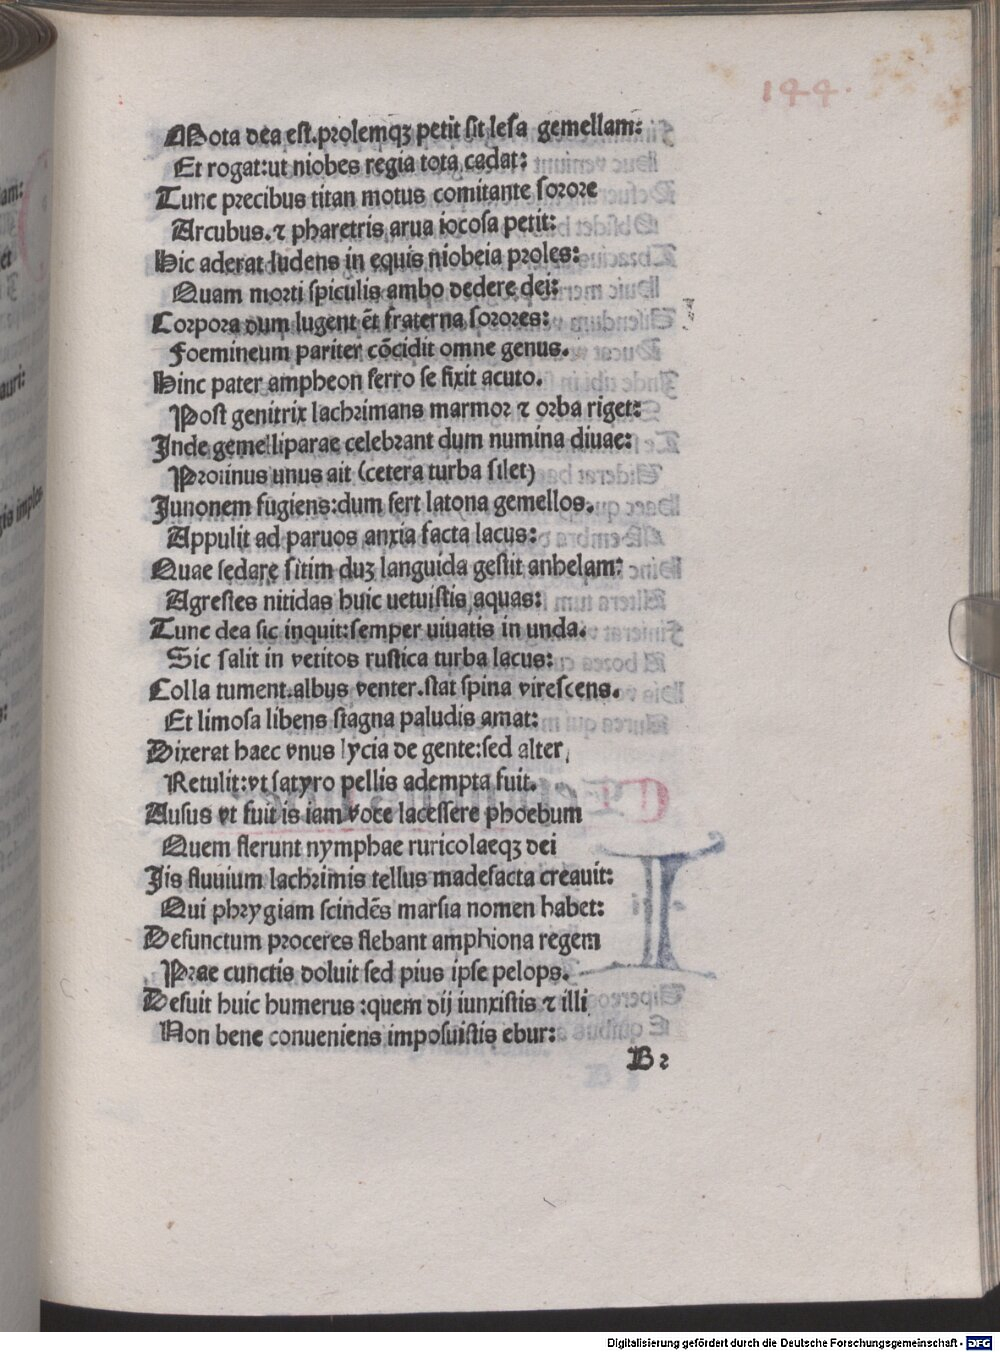 144.
Mota dea est.prolemqꝫ petit sit lesa gemellam:
Et rogat:ut niobes regia tota cadat:
Tunc precibus titan motus comitante sorore
Arcubus.⁊ pharetris arua iocosa petit:
Hic aderat ludens in equis niobeia proles:
Quam morti spiculis ambo dedere dei:
Corpora dum lugent ēt fraterna sorores:
Foemineum pariter cōcidit omne genus.
Hinc pater ampheon ferro se fixit acuto.
Post genitrix lachrimans marmor ⁊ orba riget:
Inde gemelliparae celebrant dum numina diuae:
Protinus unus ait (cetera turba silet)
Junonem fugiens:dum fert latona gemellos.
Appulit ad paruos anxia facta lacus:
Quae sedare sitim duꝫ languida gestit anhelam:
Agrestes nitidas huic uetuistis aquas:
Tunc dea sic inquit:semper uiuatis in unda.
Sic salit in vetitos rustica turba lacus:
Colla tument.albus venter.stat spina virescens.
Et limosa libens stagna paludis amat:
Dixerat haec vnus lycia de gente:sed alter
Retulit:vt satyro pellis adempta fuit.
Ausus vt fuit is iam voce lacessere phoebum
Quem flerunt nymphae ruricolaeqꝫ dei
Jis fluuium lachrimis tellus madefacta creauit:
Qui phrygiam scindēs marsia nomen habet:
Defunctum proceres flebant amphiona regem
Prae cunctis doluit sed pius ipse pelops.
Defuit huic humerus :quem dij iunxistis ⁊ illi
Non bene conueniens imposuistis ebur:
B2
Digitalisierung gefördert durch die Deutsche Forschungsgemeinschaft - DFG